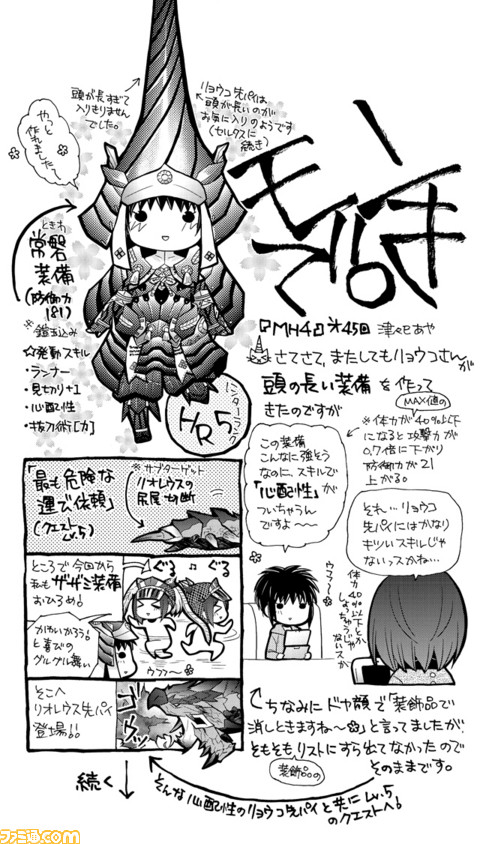 モンハンできる。
頭が長すぎて
入りきりません
でした。
リョウコ先パイは
頭が長いのが
お気に入りのようです
(セルタスに
続き)
やっと
作れました〜
ときわ
常磐
装備
(防御力
181)
※鎧玉込み
☆発動スキル
・ランナー
・見切り+1
・心配性
・抜刀術[力]
ハンターランク
HR5
MH4 第45回 津々巳あや
さてさて、またしてもリョウコさんが
頭の長い装備を作って
きたのですが
MAX値の
※体力が40%以下
になると攻撃力が
0.7倍に下がり
防御力が21
上がる。
この装備
こんなに強そう
なのに、スキルで
「心配性」が
ついちゃうん
ですよ〜〜
それ…リョウコ
先パイにはかなり
キツいスキルじゃ
ないっスかね…
ウフフ〜
体力40%以下とか
しょっちゅうじゃ
ないスか
ちなみにドヤ顔で「装飾品で
消しときますね〜」と言ってましたが、
そもそもリストにすら出てなかったので
装飾品の
そのままです。
そんな心配性のリョウコ先パイと共にLv.5
のクエストへ!
「最も危険な
運で依頼」
(クエスト
Lv.5)
※サブターゲット
リオレウスの
尻尾切断
ところで今回から
私もザザミ装備
おひろめ!
ぐる ♪ ぐる
かわいかろう!
と喜びの
グルグル舞い
ウフフ〜
そこへ
リオレウス先パイ
登場!!
ゴゴゴ
続く
ファミ通.com